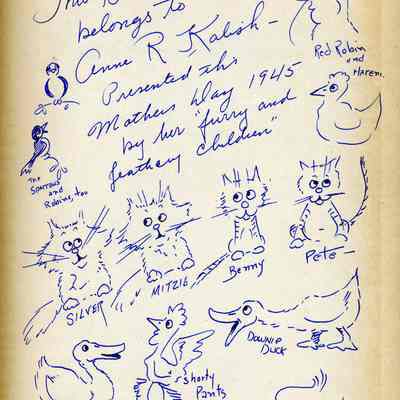 This B
belongs to
Anne R Kalish -
Presented this
Mothers Day 1945
by her "furry and
feathery children"
Red Robin
and
Harem.
The
Sparrows
and
Robins, too
SILVER
MITZIE
Benny
Pete
DOWNIE
DUCK
Shorty
Pants